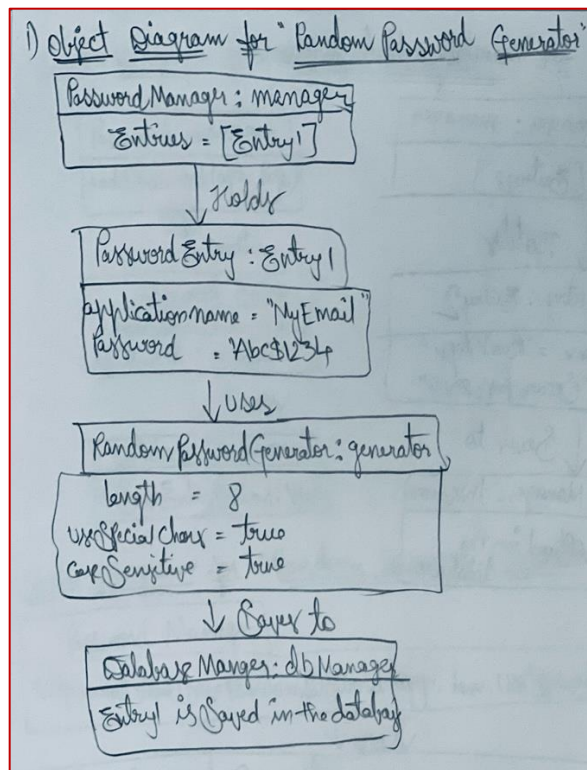 1) Object Diagram for "Random Password Generator"
Password Manager : manager
Entries = [Entry1]
Holds
Password Entry : Entry1
applicationname = "MyEmail"
Password = "Abc$1234
uses
Random Password Generator : generator
length = 8
useSpecial Chars = true
caseSensitive = true
Saves to
Database Manger : dbManager
Entry1 is Saved in the databas